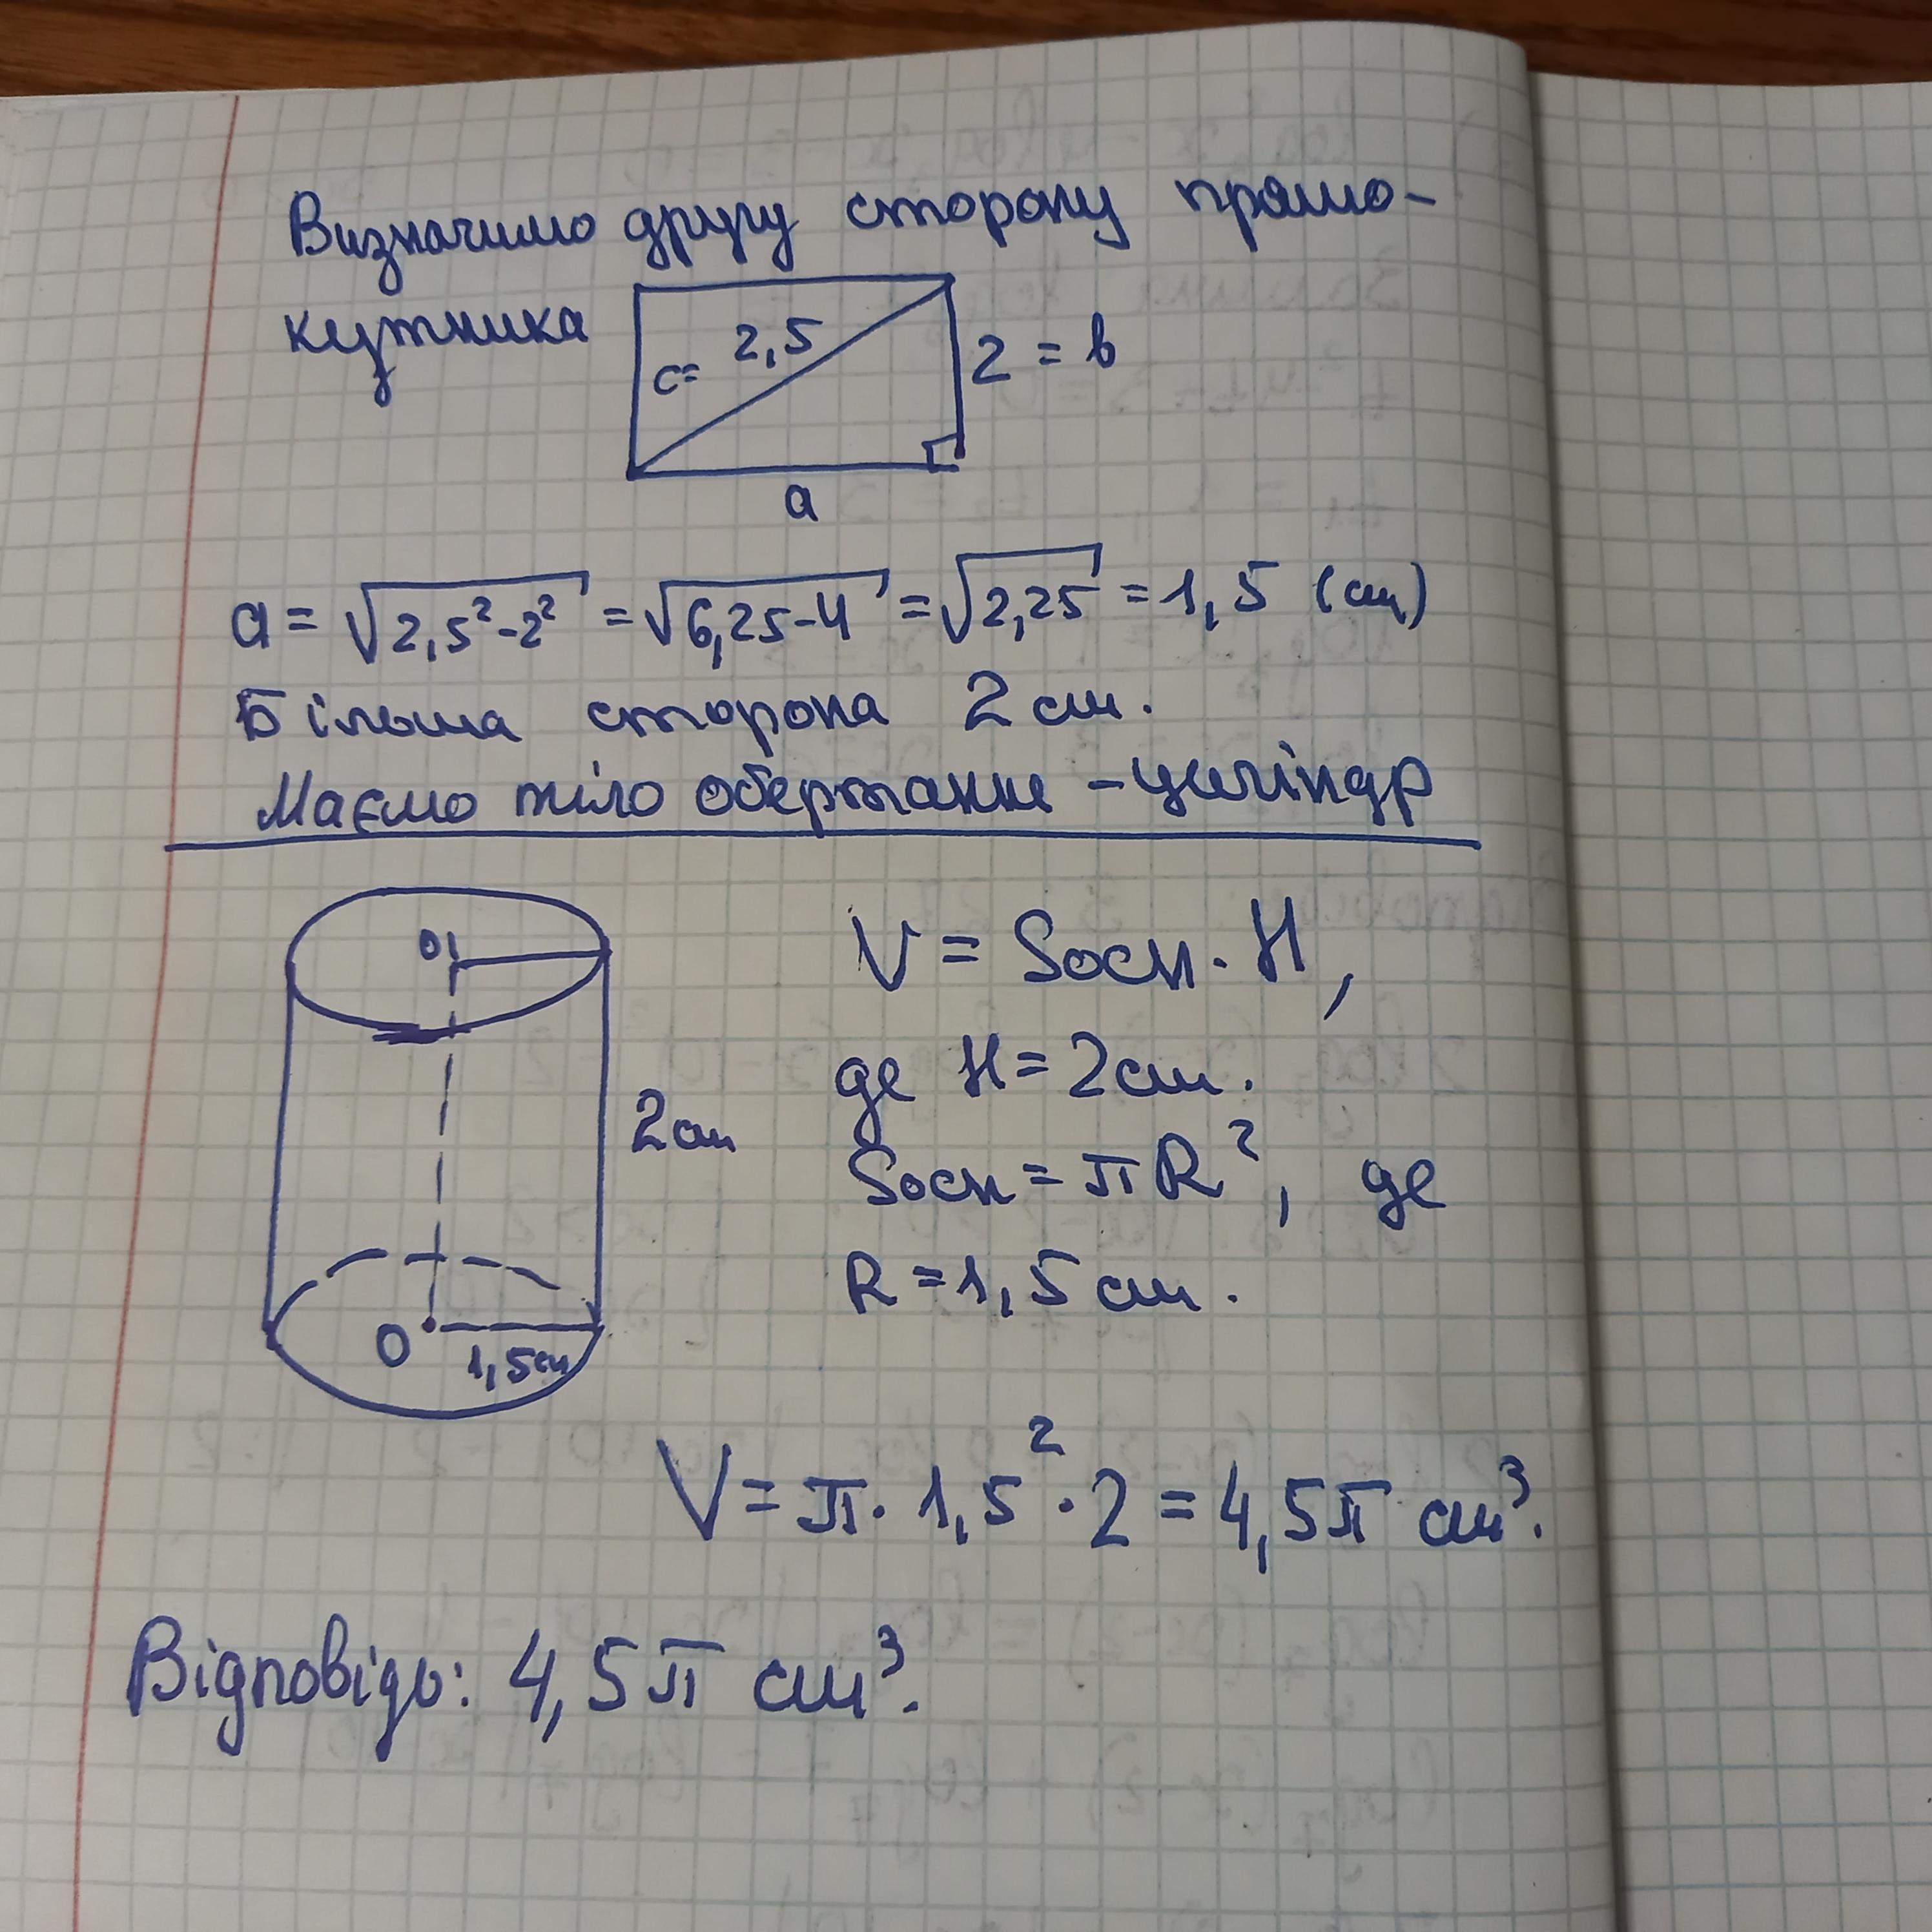 Визначимо другу сторону прямо-
кутника
c= 2,5
2 = b
a
a = √2,5²-2² = √6,25-4 = √2,25 = 1,5 (см)
Більша сторона 2 см.
Маємо тіло обертання - циліндр
O₁
V = Sосн · H,
де H = 2 см.
2 см
Sосн = πR², де
R = 1,5 см.
O
1,5 см
V = π · 1,5² · 2 = 4,5π см³.
Відповідь: 4,5π см³.